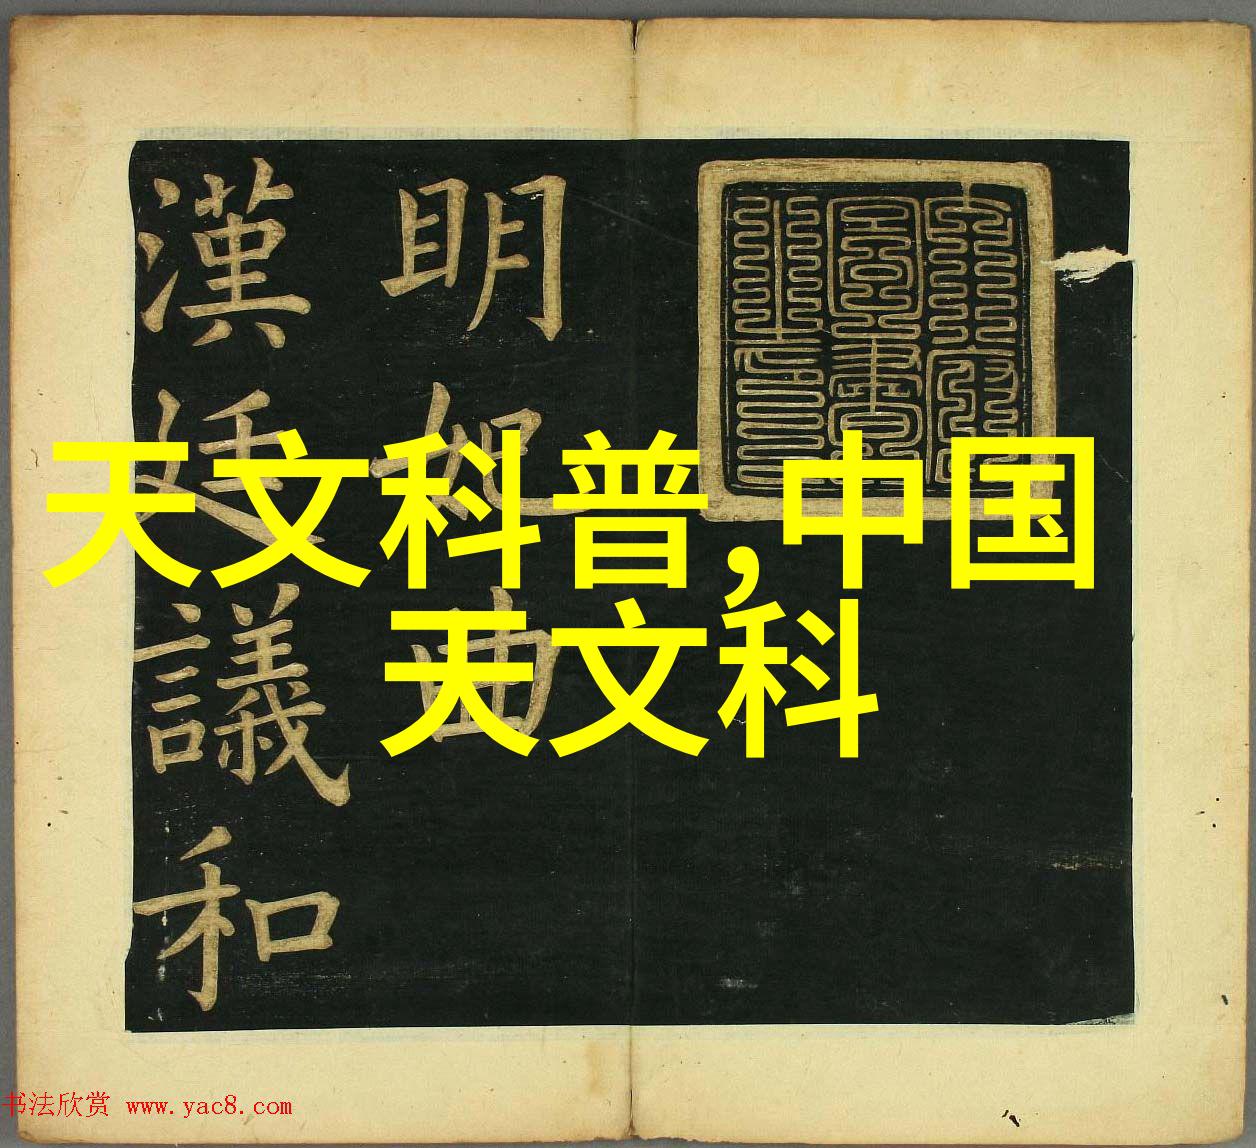 天文科普,中国
天文科
明妃曲
漢議和
书法欣赏 www.yac8.com